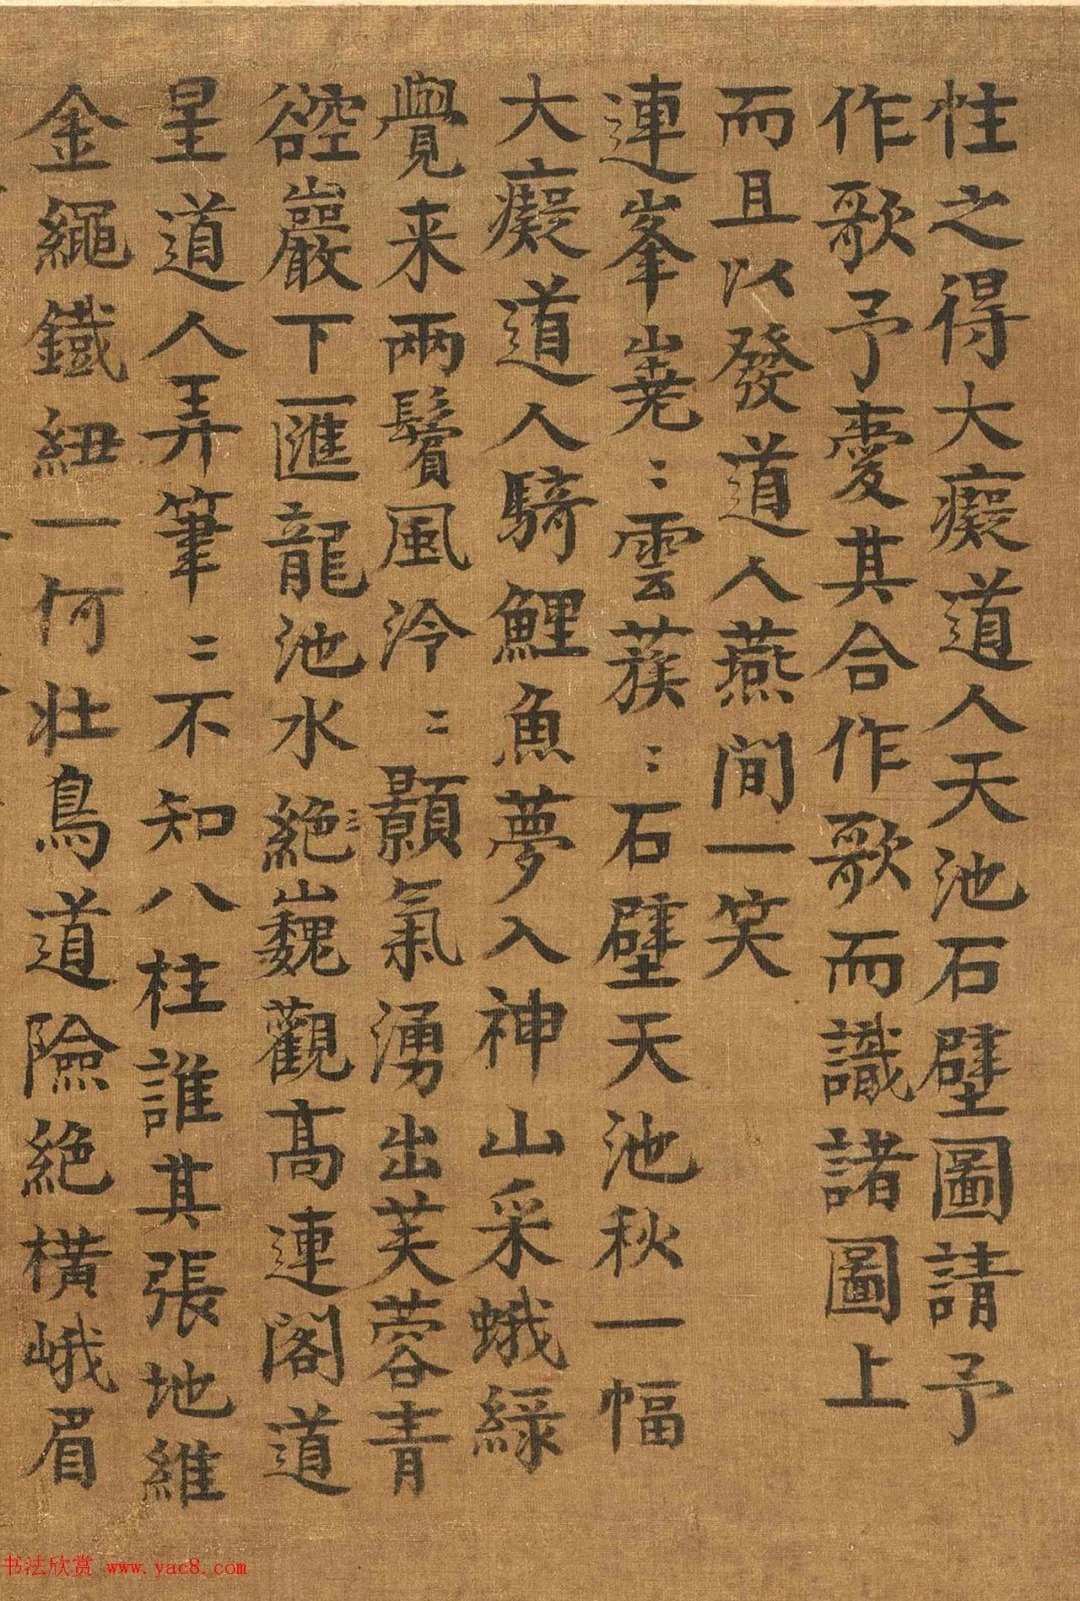 性之得大癡道人天池石壁圖請予
作歌予愛其合作歌而識諸圖上
而且以發道人燕間一笑
連峯嶤〻雲蔟〻石壁天池秋一幅
大癡道人騎鯉魚夢入神山采蛾綠
覺来兩鬢風泠〻顥氣湧出芙蓉青
谾巖下匯龍池水絶〻巍觀高連閣道
星道人弄筆〻不知八柱誰其張地維
金繩鐵紐一何壯鳥道險絶橫峨眉
书法欣赏 www.yac8.com